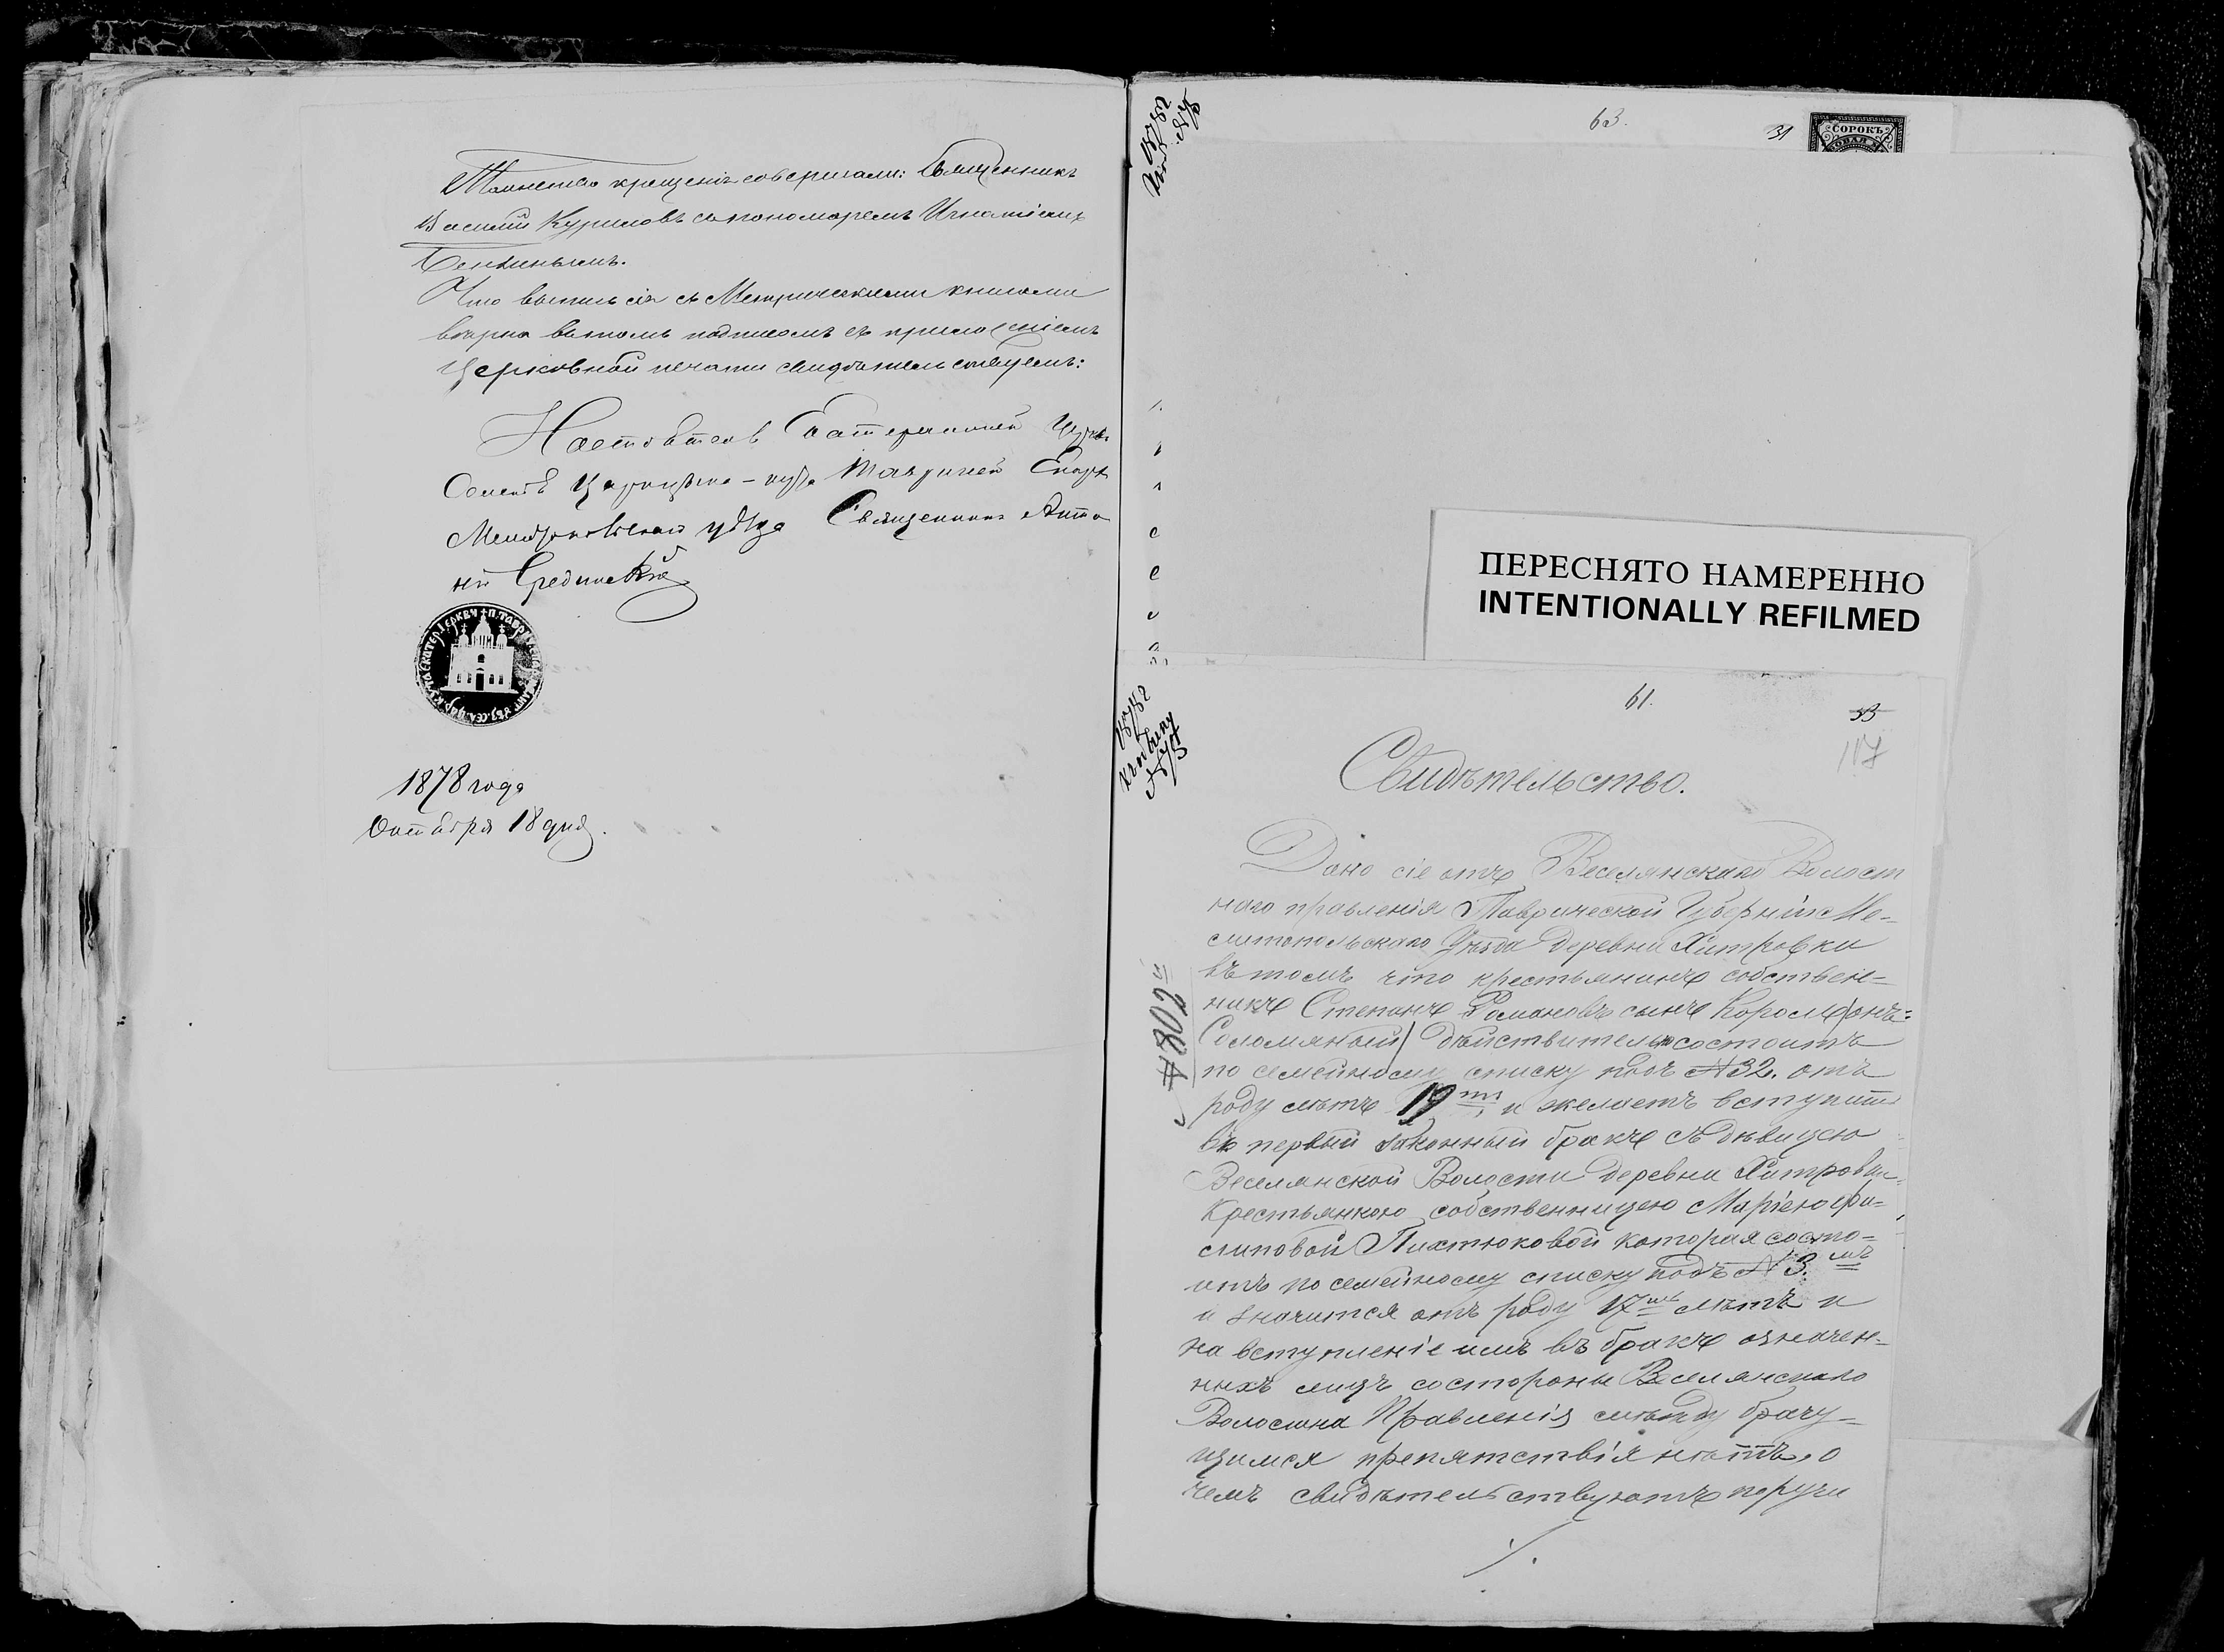 Таинство крещенія совершали: Священникъ
Василій Куриловъ съ пономаремъ Игнатіемъ
Что выпись сія съ Метрическими книгами
вѣрна въ томъ подписомъ съ приложеніемъ
Церковной печати свидѣтельствуемъ:
Настоятель Екатерининской Церкви
Мелитопольскаго уѣзда Священникъ Анто
ній
1878 года
Октября 18 дня.
63.
31
СОРОКЪ
ПЕРЕСНЯТО НАМЕРЕННО
INTENTIONALLY REFILMED
61.
33
117
Свидѣтельство.
Дано сіе отъ Веселянскаго Волост
наго правленія Таврической Губерніи Ме-
литопольскаго Уѣзда деревни Хитровки
въ томъ что крестьянинъ собствен-
никъ Степанъ Романовъ сынъ
Соломяный/ дѣйствительно состоитъ
по семейному списку подъ №32. отъ
роду лѣтъ 19ти и желаетъ вступить
въ первый законный бракъ съ дѣвицею
Веселянской Волости деревни Хитровки
Крестьянкою собственницею Маріею Фи-
липовой Пихтюковой которая состо-
итъ по семейному списку подъ №3.мъ
и значится отъ роду 17ть лѣтъ и
на вступленіе имъ въ бракъ означен-
ныхъ лицъ состороны Веселянскаго
Волостна Правленія между брачу-
щимся препятствія нѣтъ, о
чемъ свидѣтельствуютъ поручи
/.